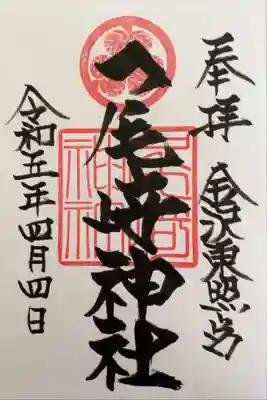 奉拝
金沢東照宮
尾崎神社
令和五年四月四日